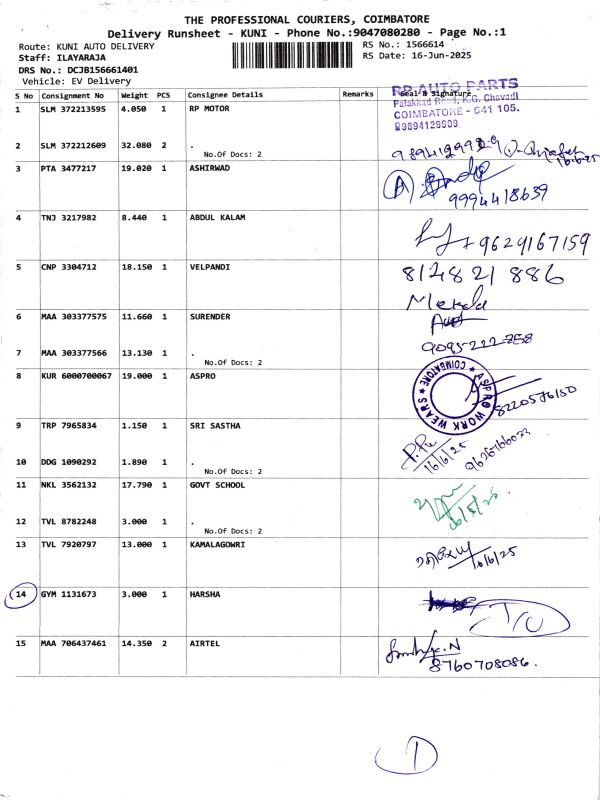 THE PROFESSIONAL COURIERS, COIMBATORE
Delivery Runsheet - KUNI - Phone No.:9047080280 - Page No.:1
Route: KUNI AUTO DELIVERY
RS No.: 1566614
Staff: ILAYARAJA
RS Date: 16-Jun-2025
DRS No.: DCJB156661401
Vehicle: EV Delivery
S No Consignment No Weight PCS Consignee Details Remarks Seal & Signature
RP AUTO PARTS
Palakkad Road, K.G. Chavadi
COIMBATORE - 641 105.
9894129909
1 SLM 372213595 4.050 1 RP MOTOR
2 SLM 372212609 32.080 2 .
No.Of Docs: 2
16.6.25
3 PTA 3477217 19.020 1 ASHIRWAD
9994418639
4 TNJ 3217982 8.440 1 ABDUL KALAM
9629167159
5 CNP 3304712 18.150 1 VELPANDI
8124821886
6 MAA 303377575 11.660 1 SURENDER
7 MAA 303377566 13.130 1 .
No.Of Docs: 2
9095-222-758
8 KUR 6000700067 19.000 1 ASPRO
ASPRO WORK WEARS
COIMBATORE
8220576150
9 TRP 7965834 1.150 1 SRI SASTHA
16/6/25
10 DDG 1090292 1.890 1 .
No.Of Docs: 2
11 NKL 3562132 17.790 1 GOVT SCHOOL
12 TVL 8782248 3.000 1 .
No.Of Docs: 2
13 TVL 7920797 13.000 1 KAMALAGOWRI
16/6/25
14 GYM 1131673 3.000 1 HARSHA
15 MAA 706437461 14.350 2 AIRTEL
8760708086.
1